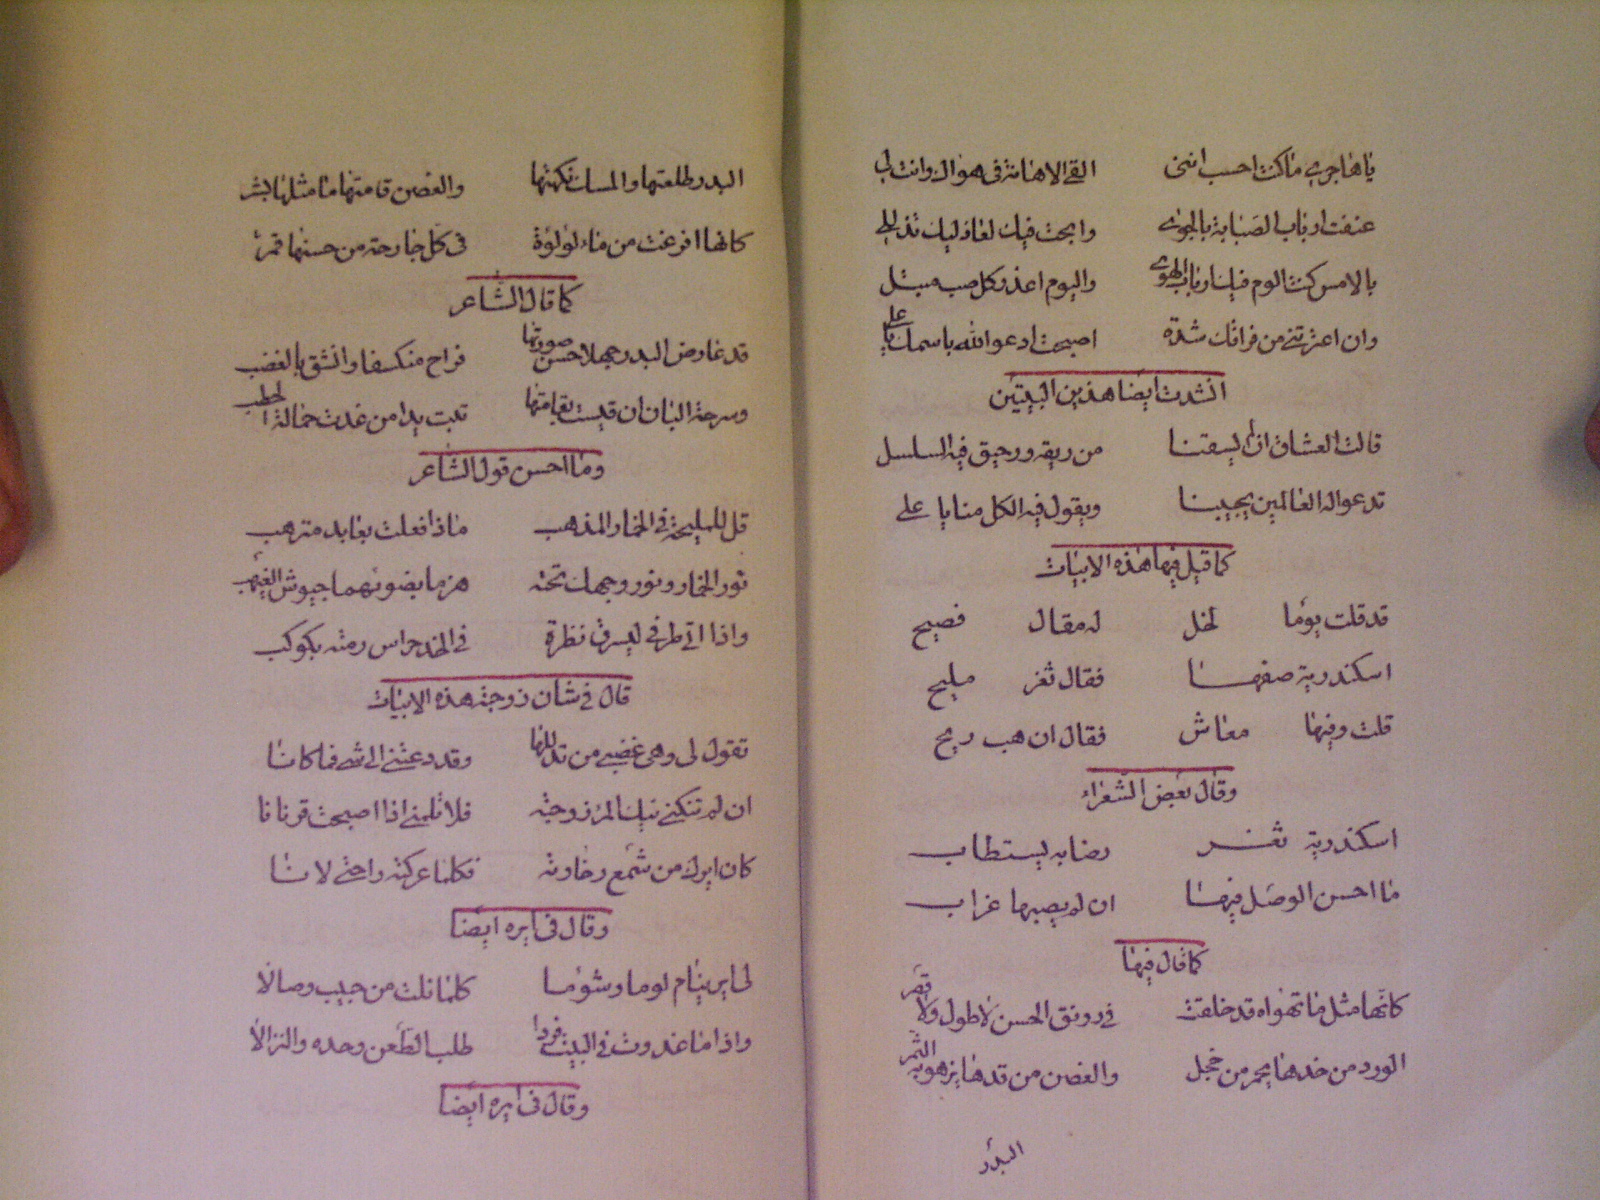 يا هاجري ما كنت احسب انني القى الاهانة في هواك وانت لي
عنفت ارباب الصبابة بالجوى وابحت فيك لعاذليك تذللي
بالامس كنت الوم فيك ارباب الهوى واليوم اعذر كل صب مبتل
وان اعترتني من فراقك شدة اصبحت ادعو الله باسمك يا علي
انشدت ايضا هذين البيتين
قالت العشاق ان لم يسقنا من ريقه ورحيق فيه السلسل
تدعو اله العالمين يجيبنا ويقول فيه الكل منا يا علي
كما قيل فيها هذه الابيات
قد قلت يوما لخل له مقال فصيح
اسكندرية صفها فقال ثغر مليح
قلت وفيها معاش فقال ان هب ريح
وقال بعض الشعراء
اسكندرية ثغر رضابه يستطاب
ما احسن الوصل فيها ان لم يصبها غراب
كما قال فيها
كانها مثل ما تهواه قد خلقت في رونق الحسن لا طول ولا قصر
الورد من خدها يحمر من خجل والغصن من قدها يزهو به الثمر
البدر
البدر طلعتها والمسك نكهتها والغصن قامتها ما مثلها بشر
كانها افرغت من ماء لؤلؤة في كل جارحة من حسنها قمر
كما قال الشاعر
قد عارض البدر جهلا حسن صورتها فراح منكسفا وانشق بالغضب
وسرحة البان ان قيست بقامتها تبت يدا من غدت حمالة الحطب
وما احسن قول الشاعر
قل للمليحة في الخمار المذهب ماذا فعلت بعابد مترهب
نور الخمار ونور وجهك تحته هزما بضوئهما جيوش الغيهب
واذا اتى طرفي ليسرق نظرة في الخد حراس رمته بكوكب
قال في شان زوجته هذه الابيات
تقول لي وهي غضبى من تدللها وقد دعتني الى شي فما كانا
ان لم تنكني نيك المرء زوجته فلا تلمني اذا اصبحت قرنانا
كان ايرك من شمع رخاوته فكلما عركته راحتي لانا
وقال في ايره ايضا
لي اير ينام لوما وشوما كلما نلت من حبيب وصالا
واذا ما غدوت في البيت فردا طلب الطعن وحده والنزالا
وقال في ايره ايضا